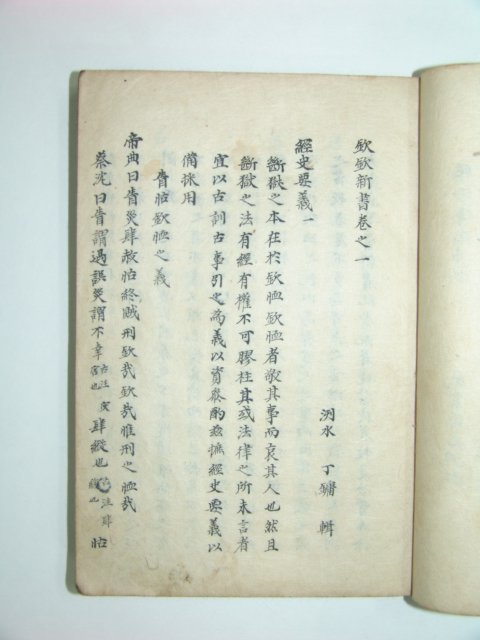 欽欽新書卷之一
洌水 丁鏞 輯
經史要義一
斷獄之本在於欽恤欽恤者敬其事而哀其人也然且
斷獄之法有經有權不可膠柱其或法律之所未言者
宜以古訓古事引之為義以資參酌玆摭經史要義以
備採用
眚怙欽恤之義
帝典曰眚災肆赦怙終賊刑欽哉欽哉惟刑之恤哉
蔡沈曰眚謂過誤災謂不幸古注灾害也肆縱也注肆緩也怙